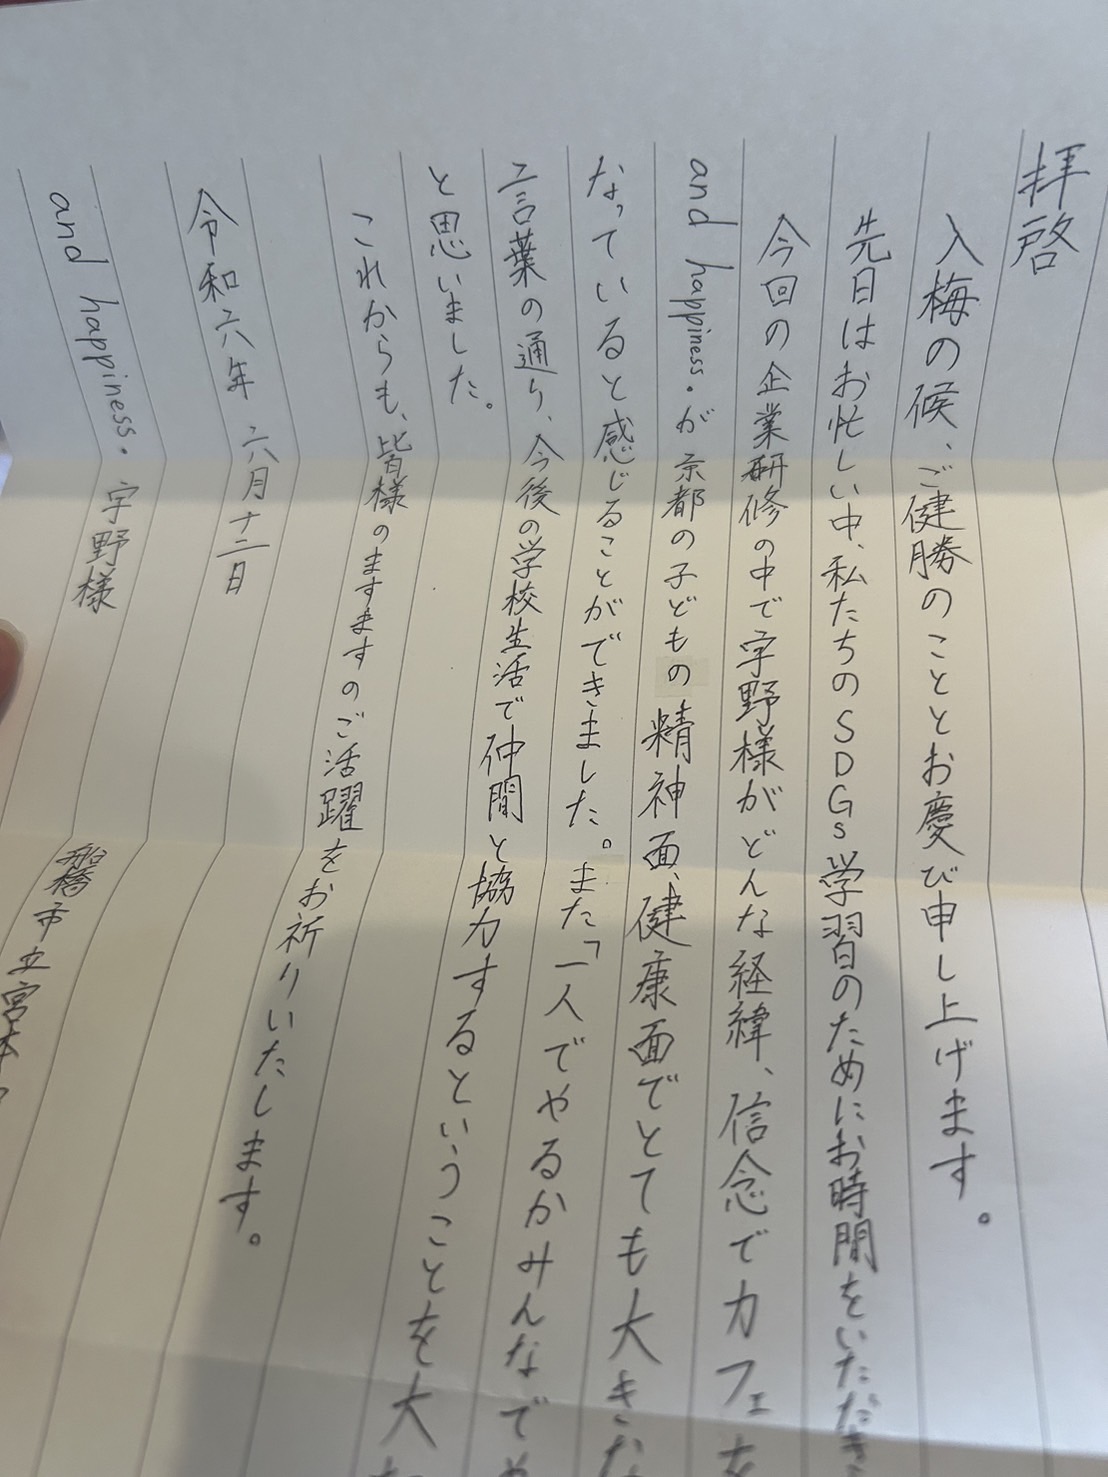 拝啓
入梅の候、ご健勝のこととお慶び申し上げます。
先日はお忙しい中、私たちのSDGs学習のためにお時間をいただき
今回の企業研修の中で宇野様がどんな経緯、信念でカフェを
and happiness.が京都の子どもの精神面、健康面でとても大きな
なっていると感じることができました。また「一人でやるかみんなでや
言葉の通り、今後の学校生活で仲間と協力するということを大
と思いました。
これからも、皆様のますますのご活躍をお祈りいたします。
令和六年 六月十二日
船橋市立宮本
and happiness. 宇野様